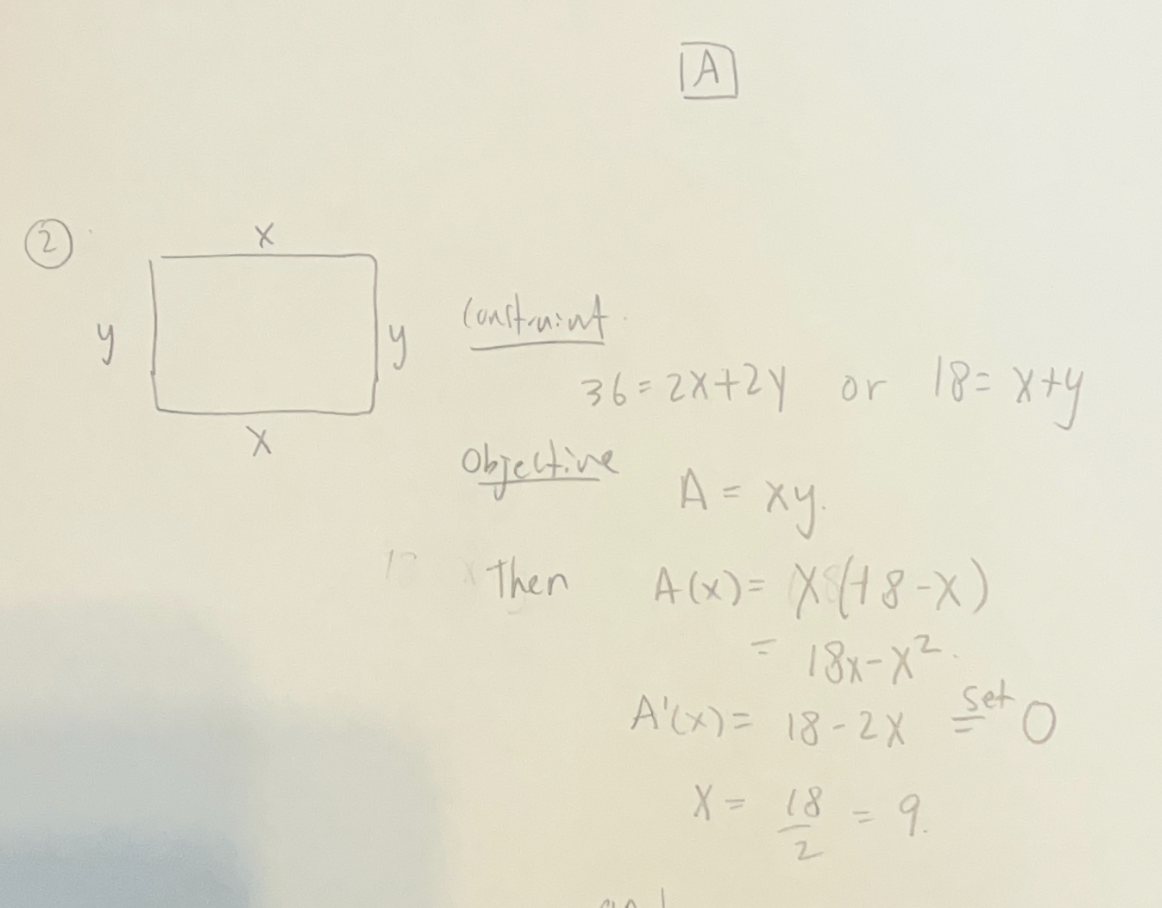 A
②
x
y
y
x
Constraint.
36 = 2x+2y or 18 = x+y
Objective
A = xy.
Then A(x) = x(18-x)
= 18x-x².
A'(x) = 18-2x set = 0
x = 18/2 = 9.